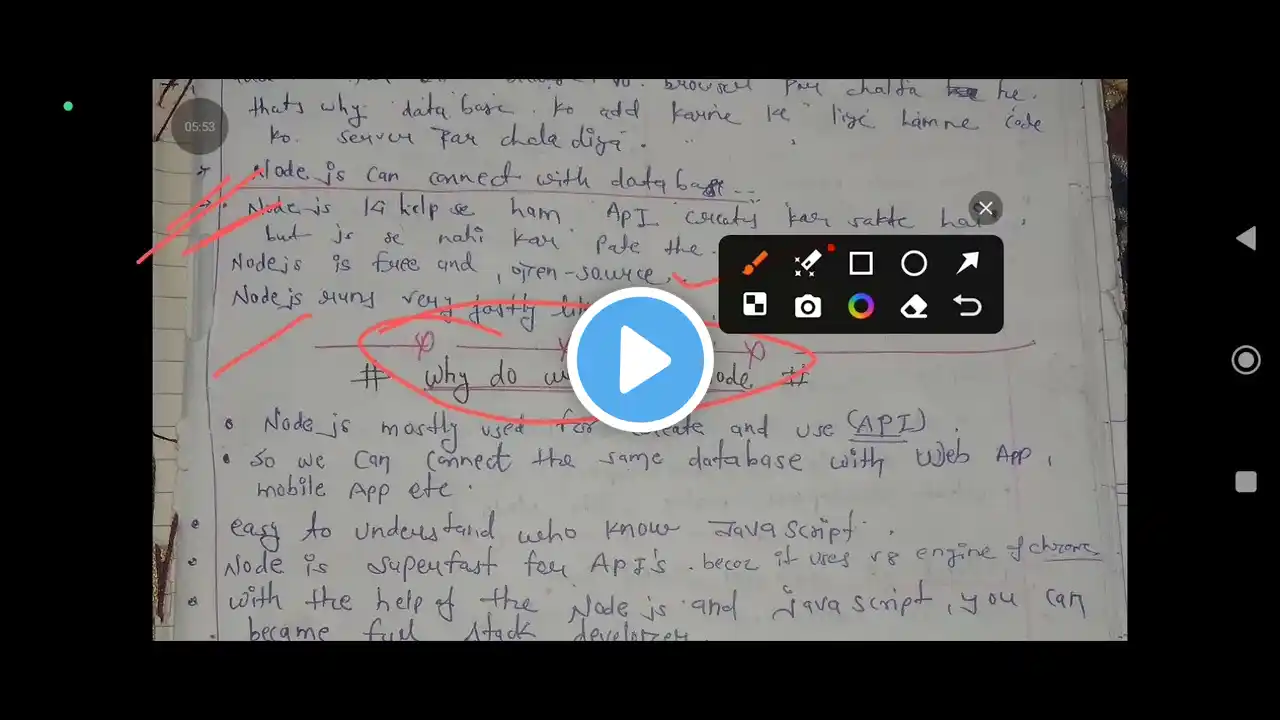 browser par chalta he.
thats why data base ko add karne ke liye hamne code
05:53
ko server par chala diya.
Node js can connect with database...
Node js ki help se ham API creates kar sakte hai
but js se nahi kar pate the.
Nodejs is free and, open-source,
Nodejs runs very fastly
# why do
#
• Node js mostly used for create and use (API).
• So we can connect the same database with Web App,
mobile App etc.
• easy to understand who know JavaScript.
• Node is superfast for API's. becoz it uses v8 engine of chrome
• with the help of the Node js and Javascript, you can
became full stack developer